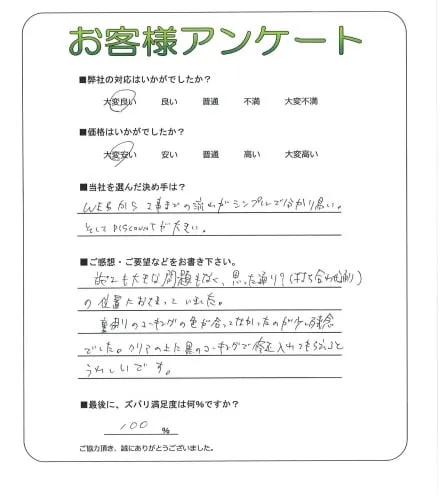 お客様アンケート
■弊社の対応はいかがでしたか？
大変良い 良い 普通 不満 大変不満
■価格はいかがでしたか？
大変安い 安い 普通 高い 大変高い
■当社を選んだ決め手は？
WEBから工事までの流れがシンプルで分かり易い。
そしてDISCOUNTが大きい。
■ご感想・ご要望などをお書き下さい。
施工も大きな問題もなく、思った通り？(打ち合わせ通り)
の位置におさまっていました。
裏周りのコーキングの色が合ってなかったのが少し残念
でした。クリアの上に黒のコーキングで修正入れてもらえると
うれしいです。
■最後に、ズバリ満足度は何%ですか？
100 %
ご協力頂き、誠にありがとうございました。